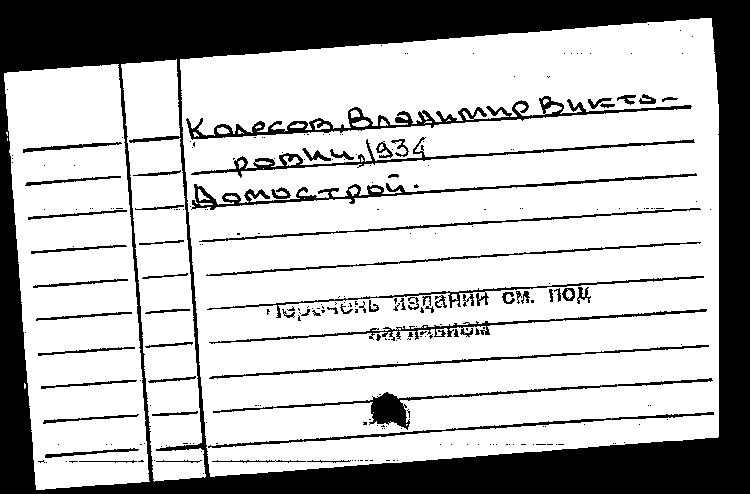 Колесов, Владимир Викто-
рович, 1934
Домострой.
Перечень изданий см. под
заглавием